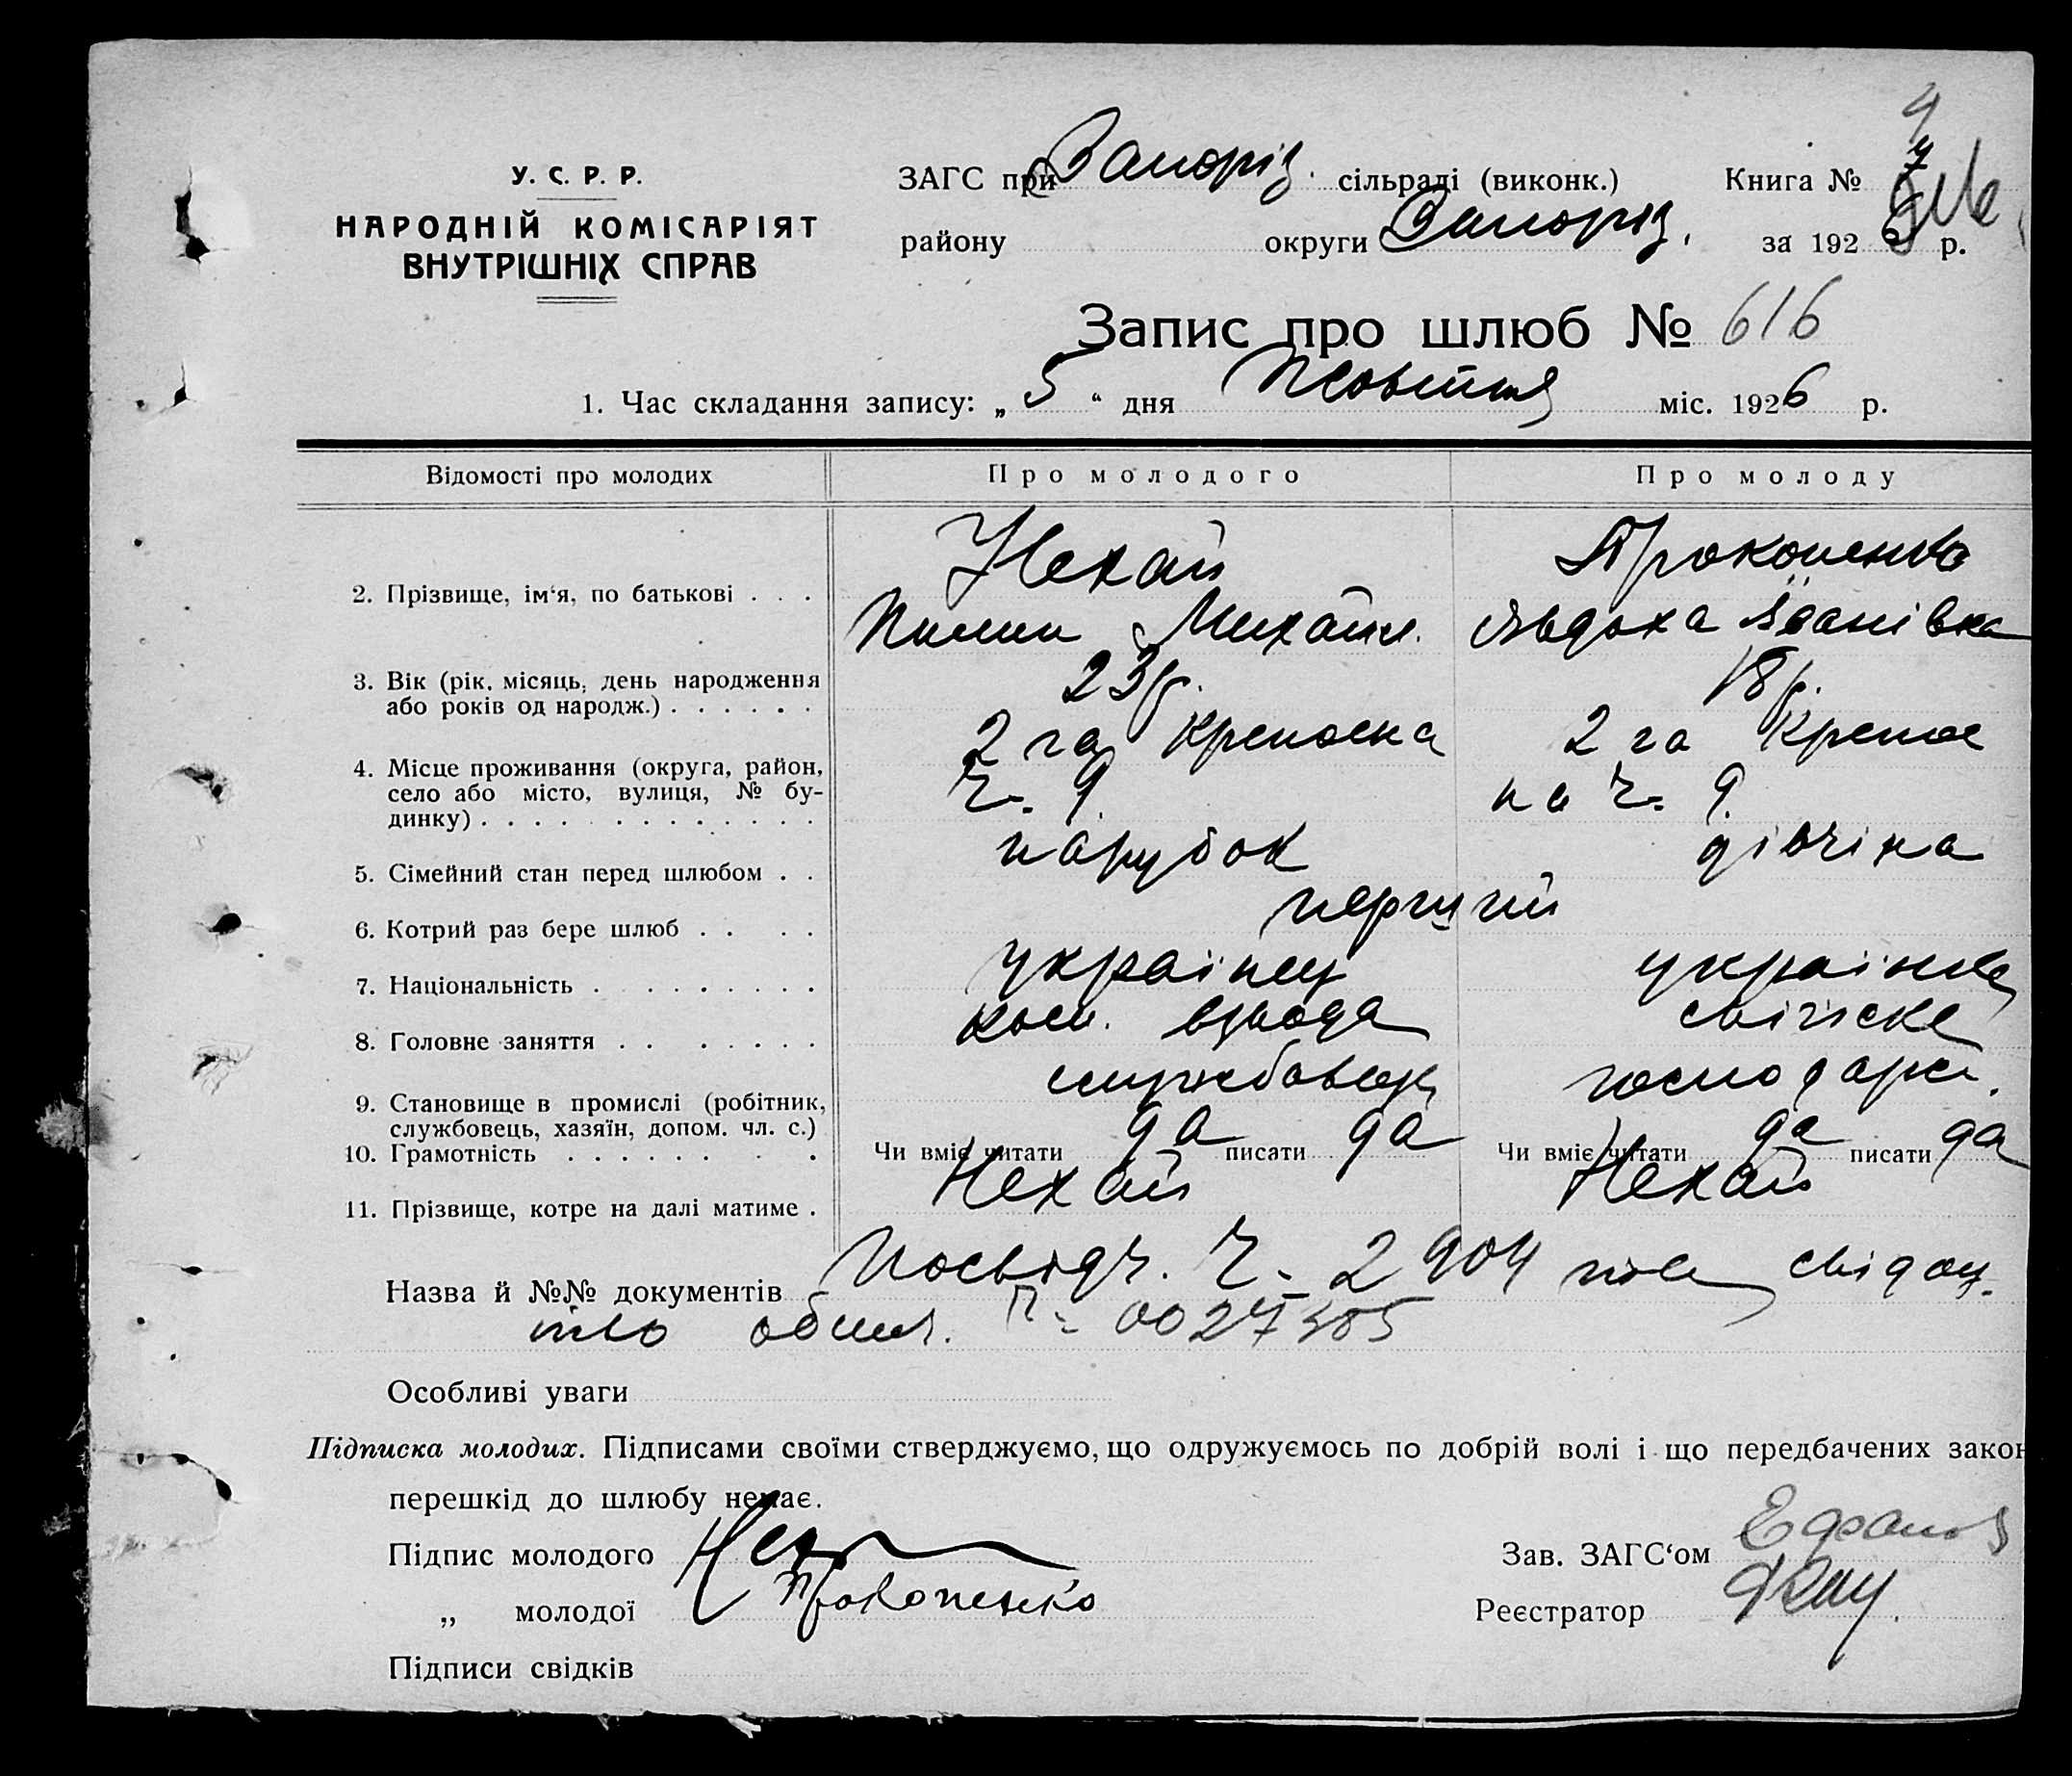 У. С. Р. Р.
НАРОДНІЙ КОМІСАРІЯТ
ВНУТРІШНІХ СПРАВ
ЗАГС при Запоріз. сільраді (виконк.) Книга №
району округи Запоріз. за 1926 р.
Запис про шлюб № 616
1. Час складання запису: „ 5 “ дня Жовтня міс. 1926 р.
Відомості про молодих Про молодого Про молоду
2. Прізвище, ім‘я, по батькові . . . Нехай Прокопенко
Пилип Михайл. Явдоха Іванівна
3. Вік (рік, місяць, день народження
або років од народж.) . . . . . . 23 р. 18 р.
4. Місце проживання (округа, район,
село або місто, вулиця, № бу-
динку) . . . . . . . . . . . . . 2 га Крепосна ч. 9 2 га Крепос на ч. 9
5. Сімейний стан перед шлюбом . . парубок дівчіна
6. Котрий раз бере шлюб . . . . перший
7. Національність . . . . . . . . . українец українка
8. Головне заняття . . . . . . . . ком. взвода сільске
9. Становище в промислі (робітник,
службовець, хазяїн, допом. чл. с.) службовец господарс.
10. Грамотність . . . . . . . . Чи вміє читати да писати да Чи вміє читати да писати да
11. Прізвище, котре на далі матиме . Нехай Нехай
Назва й №№ документів Посвідч. Ч. 2904 свідоц.
тво 0027385
Особливі уваги
Підписка молодих. Підписами своїми стверджуємо, що одружуємось по добрій волі і що передбачених закон
перешкід до шлюбу немає.
Підпис молодого Зав. ЗАГС‘ом
„ молодої Прокопенко Реєстратор
Підписи свідків